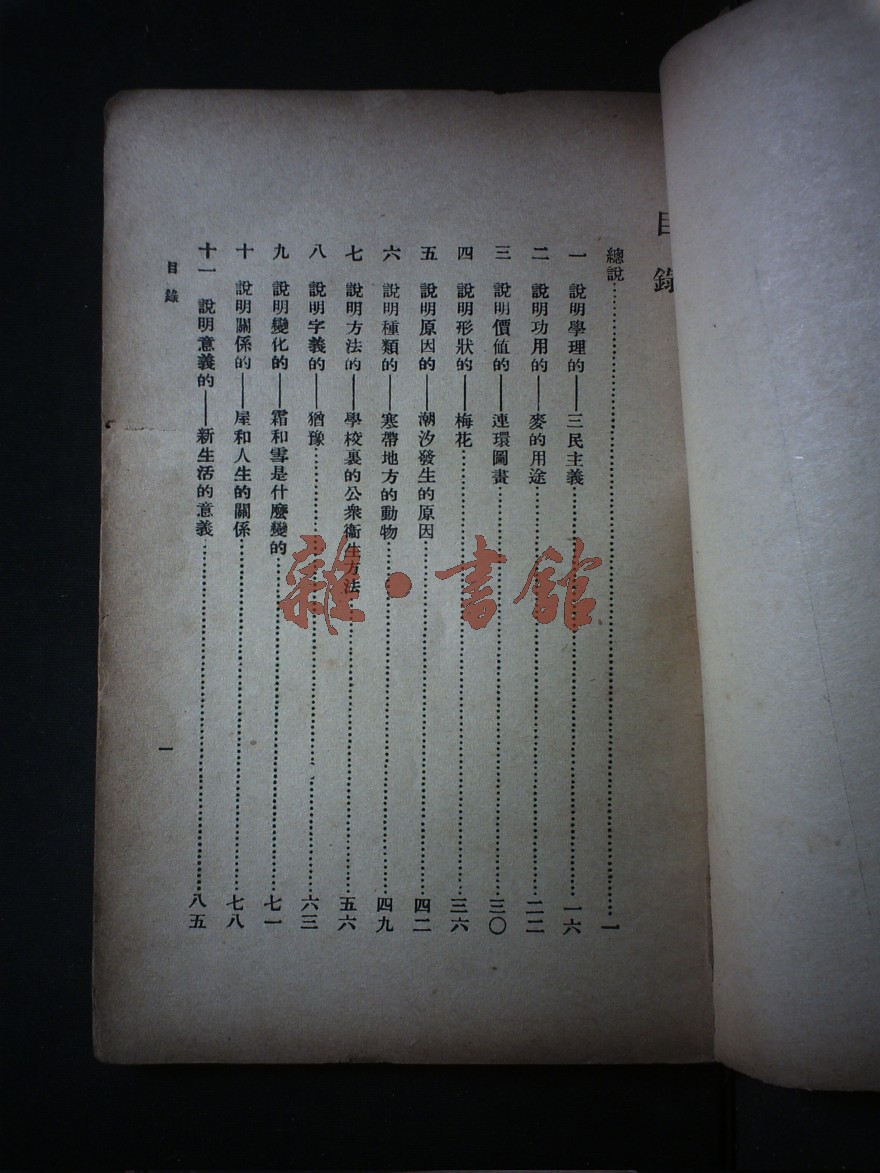 目錄
總說……………………一
一 說明學理的——三民主義……………………一六
二 說明功用的——麥的用途……………………二二
三 說明價值的——連環圖畫……………………三〇
四 說明形狀的——梅花……………………三六
五 說明原因的——潮汐發生的原因……………………四二
六 說明種類的——寒帶地方的動物……………………四九
七 說明方法的——學校裏的公衆衞生方法……………………五六
八 說明字義的——猶豫……………………六三
九 說明變化的——霜和雪是什麼變的……………………七一
十 說明關係的——屋和人生的關係……………………七八
十一 說明意義的——新生活的意義……………………八五
目錄
一
雜·書館